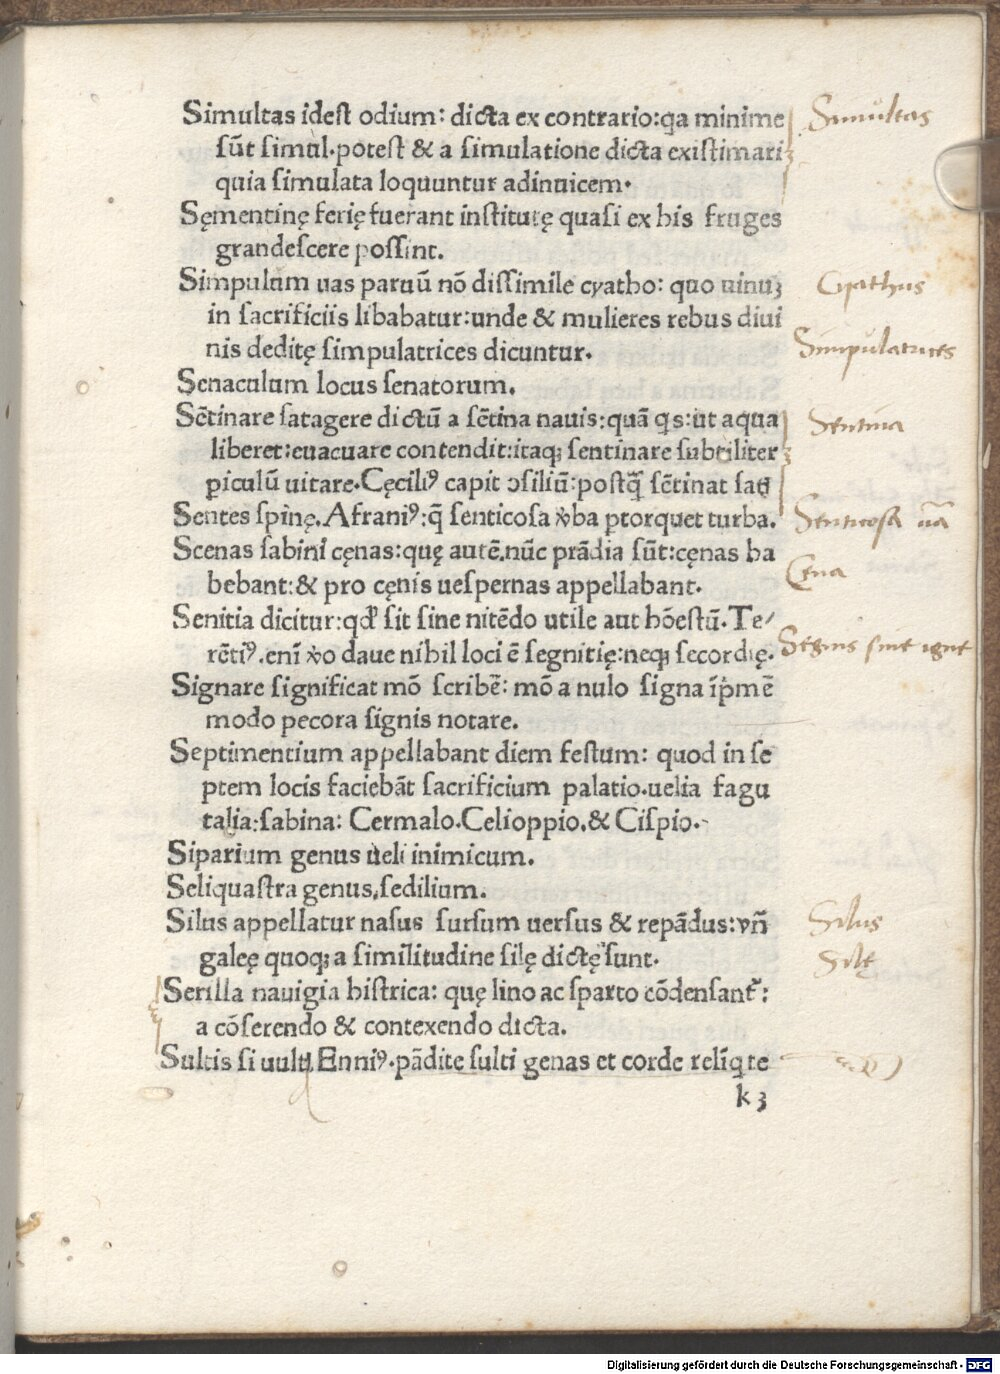 Simultas idest odium: dicta ex contrario:qa minime
sūt simul.potest & a simulatione dicta existimari
quia simulata loquuntur adinuicem.
Sęmentinę ferię fuerant institutę quasi ex his fruges
grandescere possint.
Simpulum uas paruū nō dissimile cyatho: quo uinuꝫ
in sacrificiis libabatur:unde & mulieres rebus diui
nis deditę simpulatrices dicuntur.
Senaculum locus senatorum.
Sētinare satagere dictū a sētina nauis:quā qs:ut aqua
liberet:euacuare contendit:itaqꝫ sentinare subtiliter
ꝑiculū uitare.Cęciliꝰ capit ↄsiliū:postq̄ sētinat sati
Sentes spinę.Afraniꝰ:q̄ senticosa v̊ba ꝑtorquet turba.
Scenas sabini cęnas:quę autē.nūc prādia sūt:cęnas ha
bebant:& pro cęnis uespernas appellabant.
Senitia dicitur:qd̛ sit sine nitēdo utile aut hōestū.Te/
rētiꝰ.enī v̊o daue nihil loci ē segnitię:neqꝫ secordię.
Signare significat mō scribē: mō a nulo signa īp̄mē
modo pecora signis notare.
Septimentium appellabant diem festum: quod in se
ptem locis faciebāt sacrificium palatio.uelia fagu
talia:sabina: Cermalo.Celioppio.& Cispio.
Siparium genus ueli inimicum.
Seliquastra genus,sedilium.
Silus appellatur nasus sursum uersus & repādus:vñ
galeę quoqꝫ a similitudine silę dictę sunt.
Serilla nauigia histrica: quę lino ac sparto cōdensant᷑:
a cōserendo & contexendo dicta.
Sultis si uulti Enniꝰ.pādite sulti genas et corde reliq̄te
k 3
Simultas
Cyathus
Simpulatrices
Sentina
Senticosa
Cena
Segnis sine igne
Silus
Silę
Digitalisierung gefördert durch die Deutsche Forschungsgemeinschaft - DFG